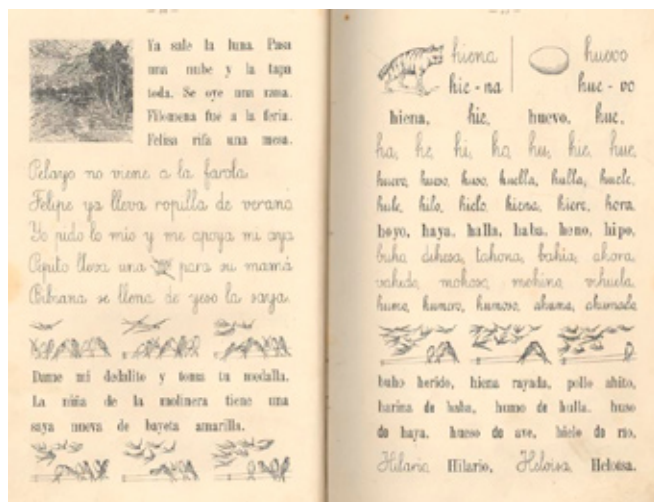 Ya sale la luna. Pasa
una nube y la tapa
toda. Se oye una rana.
Filomena fué a la feria.
Felisa rifa una mesa.
Pelayo no viene a la farola
Felipe ya lleva ropilla de verano
Yo pido lo mío y me apoya mi aya
Pepito lleva una para su mamá
Bibiana se llena de yeso la saya.
Dame mi dedalito y toma tu medalla.
La niña de la molinera tiene una
saya nueva de bayeta amarilla.
hiena huevo
hie - na hue - vo
hiena, hie, huevo, hue,
ha, he, hi, ho, hu, hie, hue,
huevo, hueso, huso, huella, hulla, huele,
hule, hilo, hielo, hiena, hiere, hora
hoyo, haya, halla, haba, heno, hipo,
buho dehesa, tahona, bahía, ahora,
vahido, mohoso, mohina, vihuela,
humo, humero, humoso, ahuma, ahumado,
buho herido, hiena rayada, pollo ahito,
harina de haba, humo de hulla. huso
de haya, hueso de ave, hielo de río,
Hilario Hilario, Heloisa Heloisa.